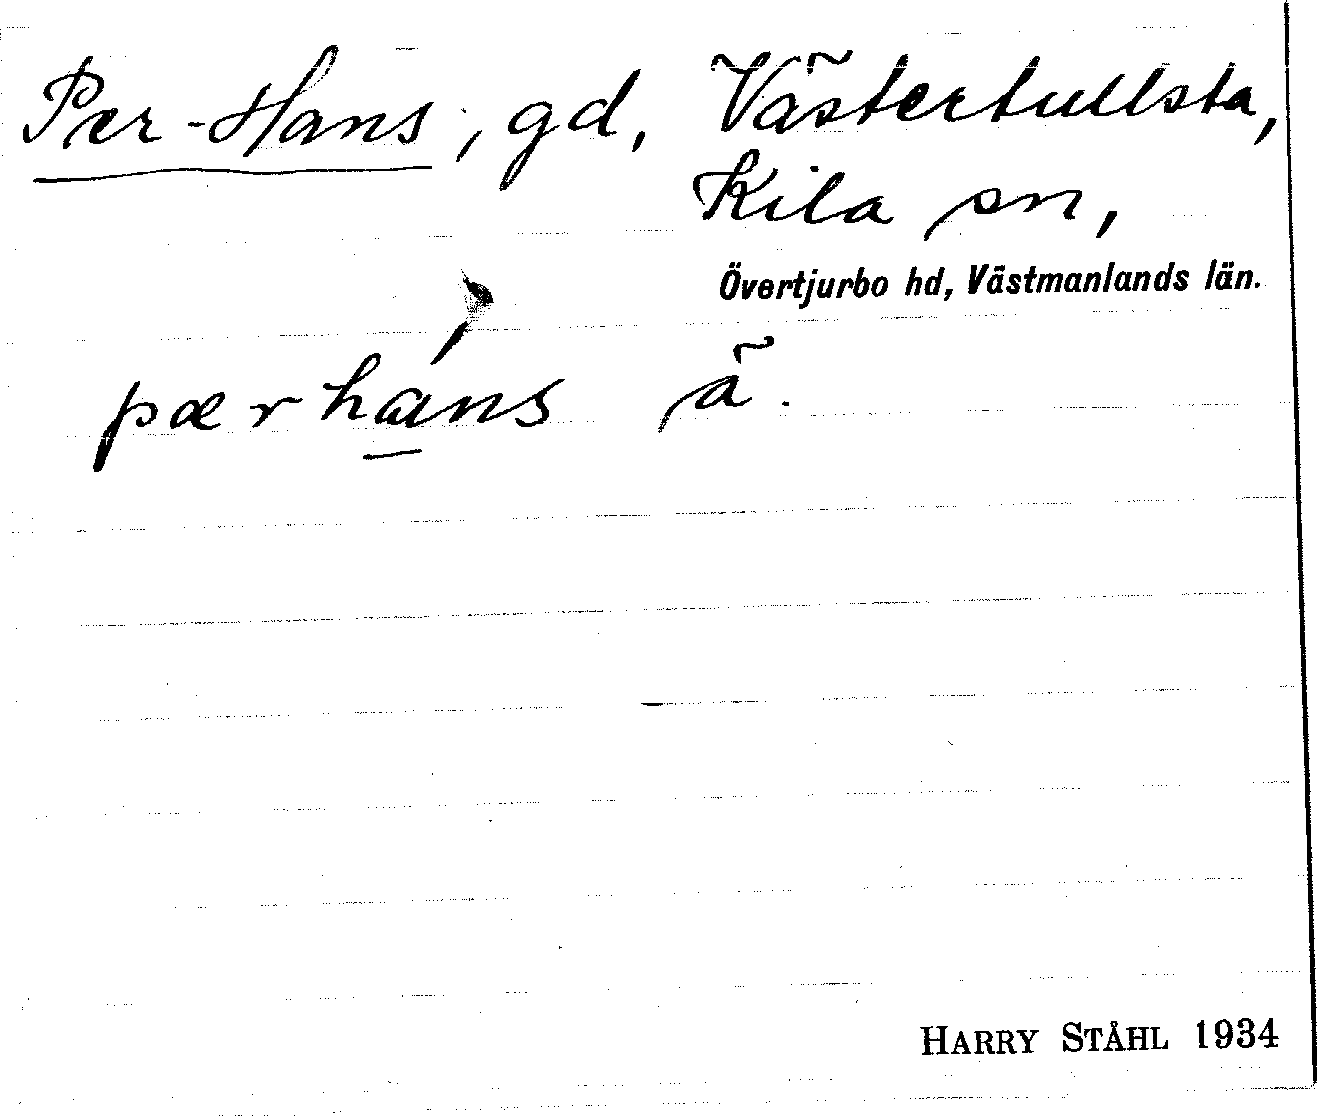 Per-Hans, gd, Västertullsta,
Kila sn,
Övertjurbo hd, Västmanlands län.
pærháns ã.
HARRY STÅHL 1934